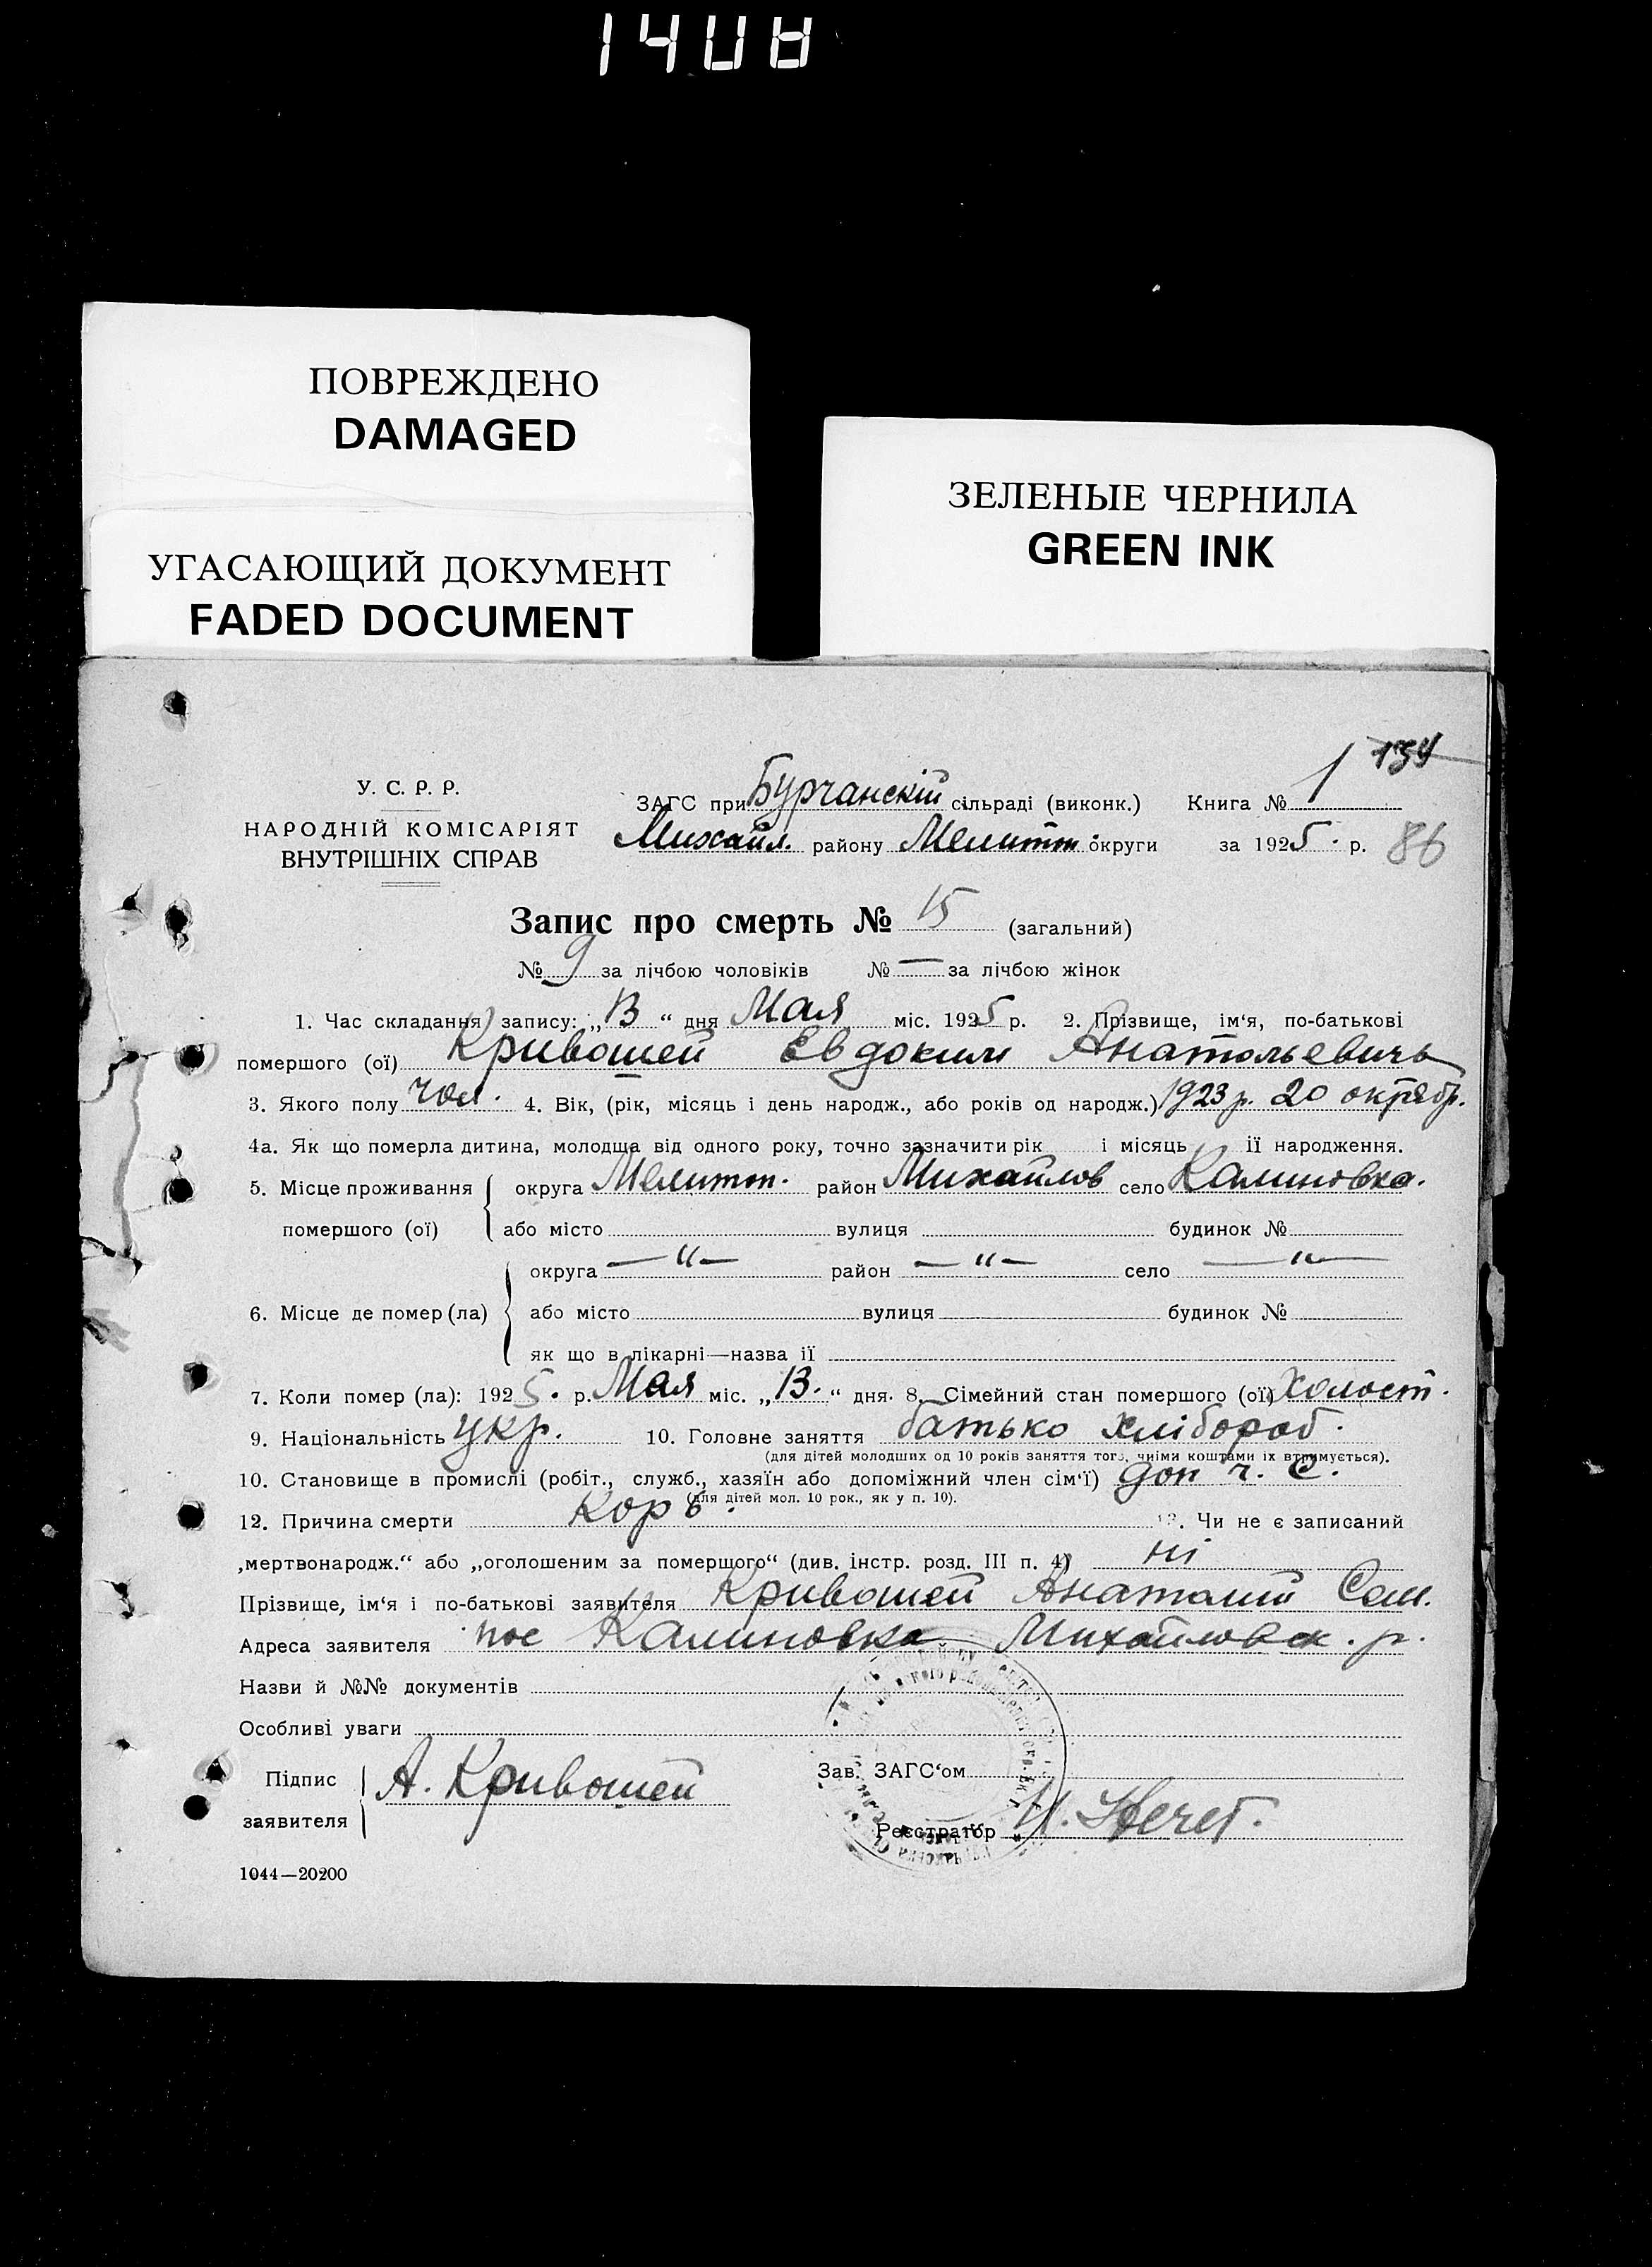 1408
ПОВРЕЖДЕНО
DAMAGED
УГАСАЮЩИЙ ДОКУМЕНТ
FADED DOCUMENT
ЗЕЛЕНЫЕ ЧЕРНИЛА
GREEN INK
134
У. С. Р. Р.
НАРОДНІЙ КОМІСАРІЯТ
ВНУТРІШНІХ СПРАВ
ЗАГС при Бурчанскій сільраді (виконк.) Книга № 1
Михайл. району Мелитоп округи за 1925 . р. 86
Запис про смерть № 15 (загальний)
№ 9 за лічбою чоловіків № — за лічбою жінок
1. Час складання запису: „13“ дня Мая міс. 1925 р. 2. Прізвище, ім‘я, по-батькові
помершого (ої) Кривошей Евдоким Анатольевичь
3. Якого полу чол. 4. Вік, (рік, місяць і день народж., або років од народж.) 1923 р. 20 октябр.
4а. Як що померла дитина, молодща від одного року, точно зазначити рік і місяць її народження.
5. Місце проживання округа Мелитоп. район Михайлов село Калиновка.
помершого (ої) або місто вулиця будинок №
округа —"— район —"— село —"—
6. Місце де помер (ла) або місто вулиця будинок №
як що в лікарні—назва її
7. Коли помер (ла): 1925. р. Мая міс. „13.“ дня. 8. Сімейний стан помершого (ої) холост.
9. Національність укр. 10. Головне заняття батько хлібороб.
(для дітей молодших од 10 років заняття того, чиїми коштами їх втримується).
10. Становище в промислі (робіт., служб., хазяїн або допоміжний член сім‘ї) доп ч. с.
(для дітей мол. 10 рок., як у п. 10).
12. Причина смерти Корь. 13. Чи не є записаний
„мертвонародж.“ або „оголошеним за померщого“ (див. інстр. розд. III п. 4) ні
Прізвище, ім‘я і по-батькові заявителя Кривошей Анатолий Сем.
Адреса заявителя пос Калиновка Михайловск. р.
Назви й №№ документів
Особливі уваги
Підпис заявителя А. Кривошей
Зав. ЗАГС‘ом
Реєстратор
1044—20200